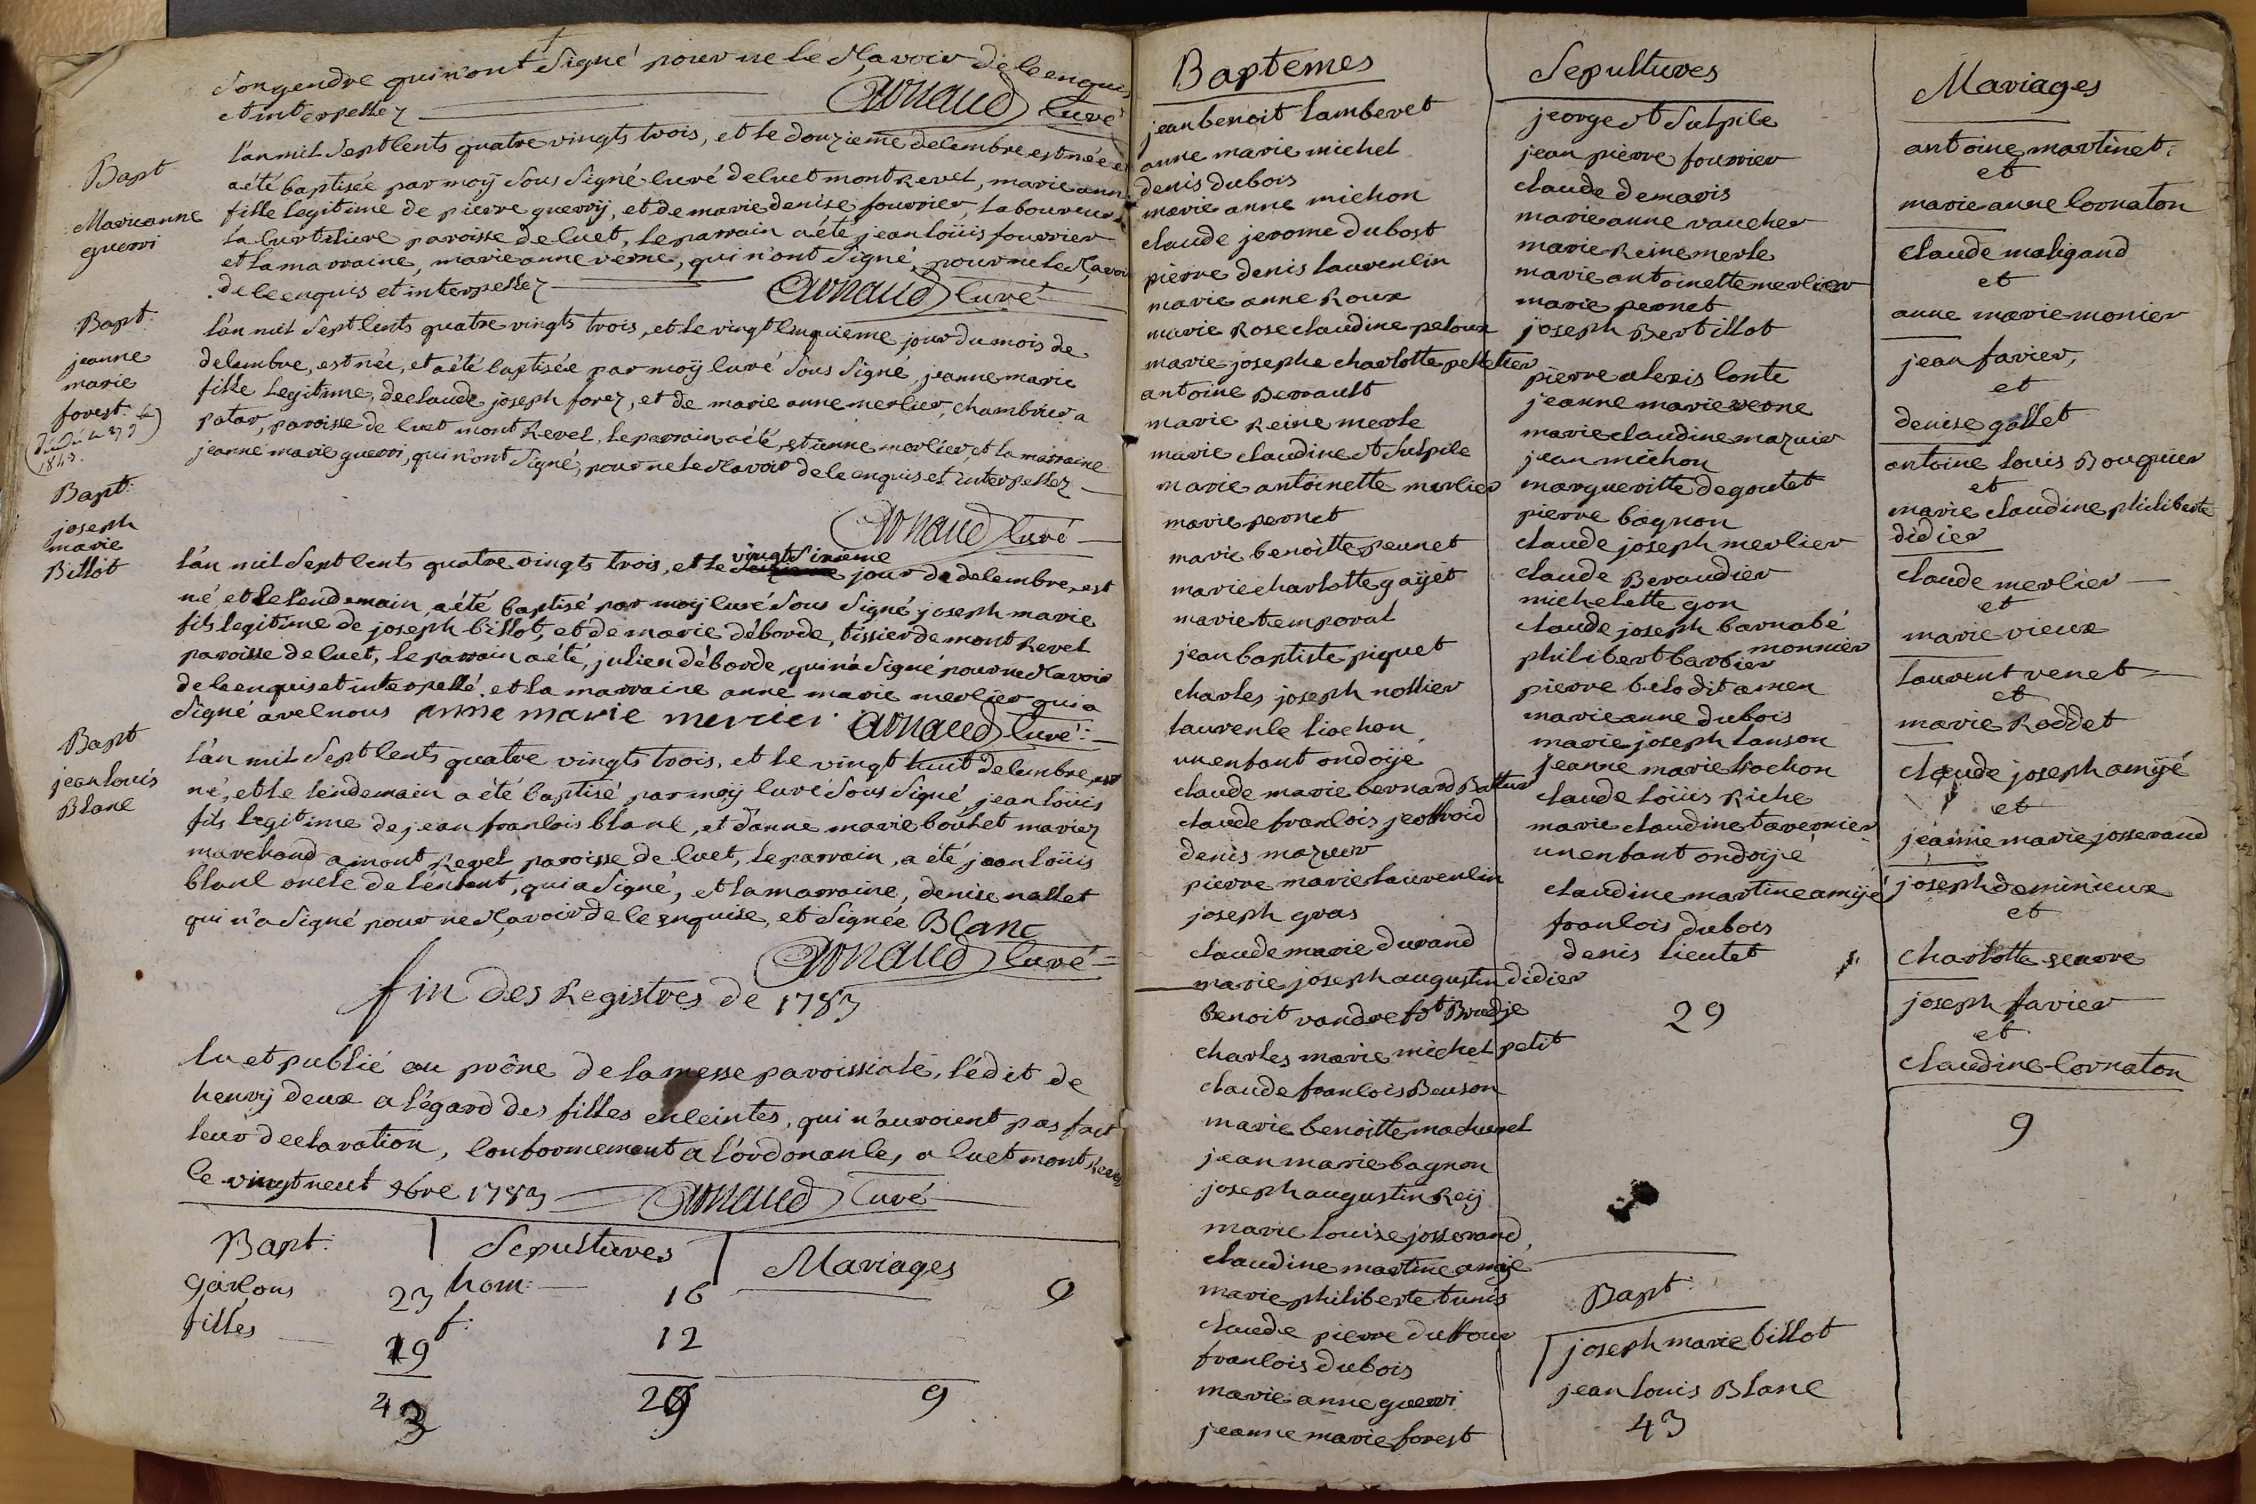 son gendre qui n'ont signé pour ne le sçavoir de ce enquis
et interpellez Arnaud curé
Bapt
Marieanne
guerri
l'an mil sept cents quatre vingts trois, et le douzieme decembre est née et
a été baptisée par moÿ sous signé curé de cuet montrevel, marie anne
fille legitime de pierre guerrÿ, et de marie denise fourrier, laboureurs
la curtiliere paroisse de cuet, le parrain a été jean loüis fourrier
et la marraine, marie anne verne, qui n'ont signé, pour ne le sçavoir
de ce enquis et interpellez Arnaud curé
Bapt:
jeanne
marie
forest.
1843.
l'an mil sept cents quatre vingts trois, et le vingt cinquieme jour du mois de
decembre, est née, et a été baptisée par moÿ curé sous signé, jeanne marie
fille legitime, de claude joseph forez, et de marie anne merlier, chambrier a
patar, paroisse de cuet montrevel, le parrain a été, etienne merlier et la marraine
jeanne marie guerri, qui n'ont signé, pour ne le sçavoir de ce enquis et interpellez
Arnaud curé
Bapt:
joseph
marie
Billot
l'an mil sept cents quatre vingts trois, et le vingt sixieme jour de decembre, est
né, et le lendemain, a été baptisé par moÿ curé sous signé, joseph marie
fils legitime de joseph billot, et de marie déborde, tissier de montrevel
paroisse de cuet, le parrain a été, julien déborde, qui n'a signé pour ne sçavoir
de ce enquis et interpellé. et la marraine anne marie merlier qui a
signé avec nous anne marie mercier Arnaud curé
Bapt
jean louis
Blanc
l'an mil sept cents quatre vingts trois, et le vingt huit decembre, est
né, et le lendemain a été baptisé par moÿ curé sous signé, jean loüis
fils legitime de jean francois blanc, et d'anne marie bouhet mariez
marchand a montrevel paroisse de cuet, le parrain, a été jean loüis
blanc oncle de l'enfant, qui a signé, et la marraine, denise nallet
qui n'a signé pour ne sçavoir de ce enquise, et signée Blanc
Arnaud curé
fin des Registres de 1783
lu et publié au prône de la messe paroissiale, l'édit de
henrÿ deux a l'égard des filles enceintes, qui n'auroient pas fait
leur declaration, conformement a l'ordonance, a cuet montrevel
le vingt neuf xbre 1783 Arnaud curé
Bapt: Sepultures Mariages
garçons 23 hom: 16 9
filles 19 f: 12
43 29 9
Baptemes
jean benoit lamberet
anne marie michel
denis dubois
marie anne michon
claude jerome dubost
pierre denis laurencin
marie anne Roux
marie Rose claudine peloux
marie josephe charlotte pelletier
antoine Berrault
marie Reine merle
marie claudine st sulpice
marie antoinette merlier
marie pernet
marie benoitte peunet
marie charlotte gaÿet
marie temporal
jean baptiste piquet
charles joseph nollier
laurence liochon
un enfant ondoÿé
claude marie bernard Battur
claude francois jeoffroid
denis mazuer
pierre marie laurencin
joseph gras
claude marie durand
marie joseph augustin didier
Benoit vandre
charles marie michel petit
claude francois Benson
marie benoitte machurel
jean marie bagnon
joseph augustin Reÿ
marie louise josserand
claudine martine amÿé
marie philiberte tunis
claude pierre duffour
francois dubois
marie anne guerri
jeanne marie forest
Sepultures
jeorge st sulpice
jean pierre fourrier
claude demaris
marie anne vaucher
marie Reine merle
marie antoinette merlier
marie pernet
joseph Bertillot
pierre alexis conte
jeanne marie verne
marie claudine mazuir
jean michon
margueritte degoutet
pierre bagnon
claude joseph merlier
claude Beraudier
michelette gon
claude joseph barnabé
monnier
philibert barbier
pierre belo dit amen
marie anne dubois
marie joseph lanson
jeanne marie liochon
claude loüis Riche
marie claudine tavernier
un enfant ondoÿé
claudine martine amÿé
francois dubois
denis lieutet
29
Bapt:
joseph marie billot
jean louis Blanc
43
Mariages
antoine martinet:
et
marie anne cornaton
claude maligand
et
anne marie monier
jean favier,
et
denise gallet
antoine louis Bouquier
et
marie claudine philiberte
didier
claude merlier
et
marie vieux
laurent venet
et
marie Roddet
claude joseph amÿé
et
jeanne marie josserand
joseph deminieux
et
charlotte
joseph favier
et
claudine cornaton
9